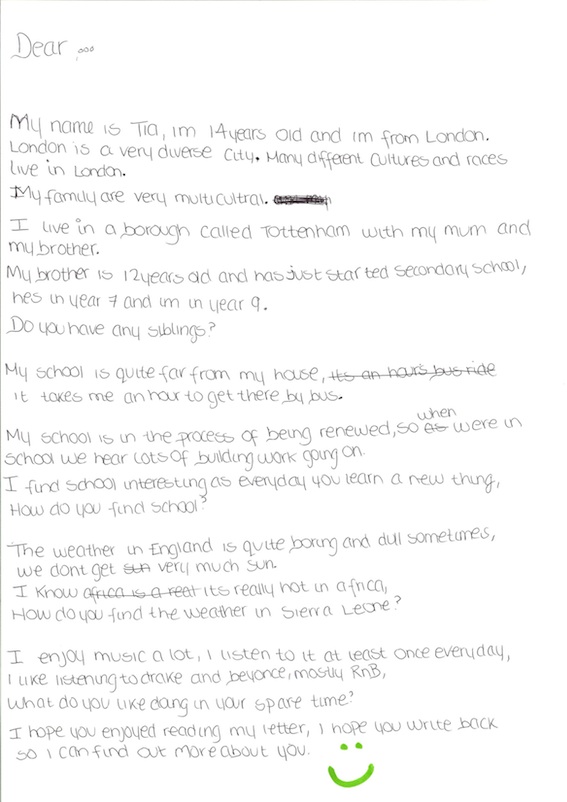 Dear ...
My name is Tia, im 14 years old and im from London.
London is a very diverse city. Many different cultures and races
live in London.
My family are very multicultral.
I live in a borough called Tottenham with my mum and
my brother.
My brother is 12 years old and has just started secondary school,
hes in year 7 and im in year 9.
Do you have any siblings?
My school is quite far from my house, its an hours bus ride
it takes me an hour to get there by bus.
when
My school is in the process of being renewed, so as were in
school we hear lots of building work going on.
I find school interesting as everyday you learn a new thing,
How do you find school?
The weather in England is quite boring and dull sometimes,
we dont get sun very much sun.
I know africa is a reat its really hot in africa,
How do you find the weather in Sierra Leone?
I enjoy music a lot, i listen to it at least once everyday,
i like listening to drake and beyonce, mostly RnB,
what do you like doing in your spare time?
I hope you enjoyed reading my letter, i hope you write back
so i can find out more about you.